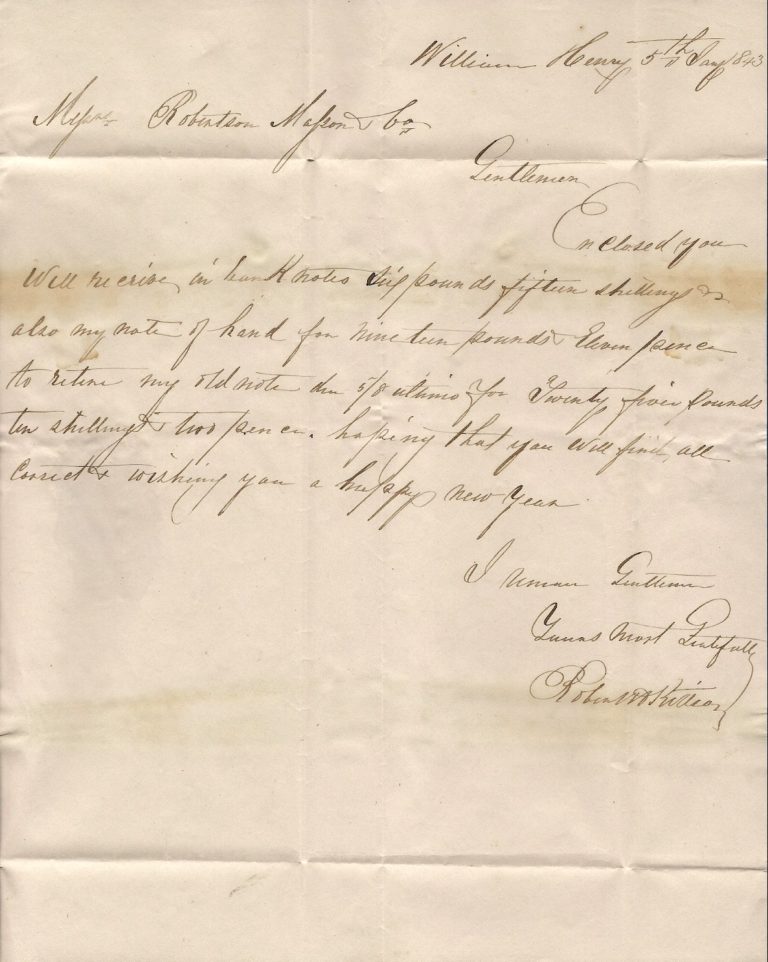 William Henry 5th Jany 1843
Messrs Robertson Masson & Co
Gentlemen
Enclosed you
Will receive in bank notes Six pounds fifteen shillings &
also my note of hand for Nineteen pounds & Eleven pence
to retire my old note due 5/8 ultimo for Twenty five Pounds
ten shillings & two pence. hoping that you Will find all
Correct & wishing you a happy new Year
I remain Gentlemen
Yours Most
Robert